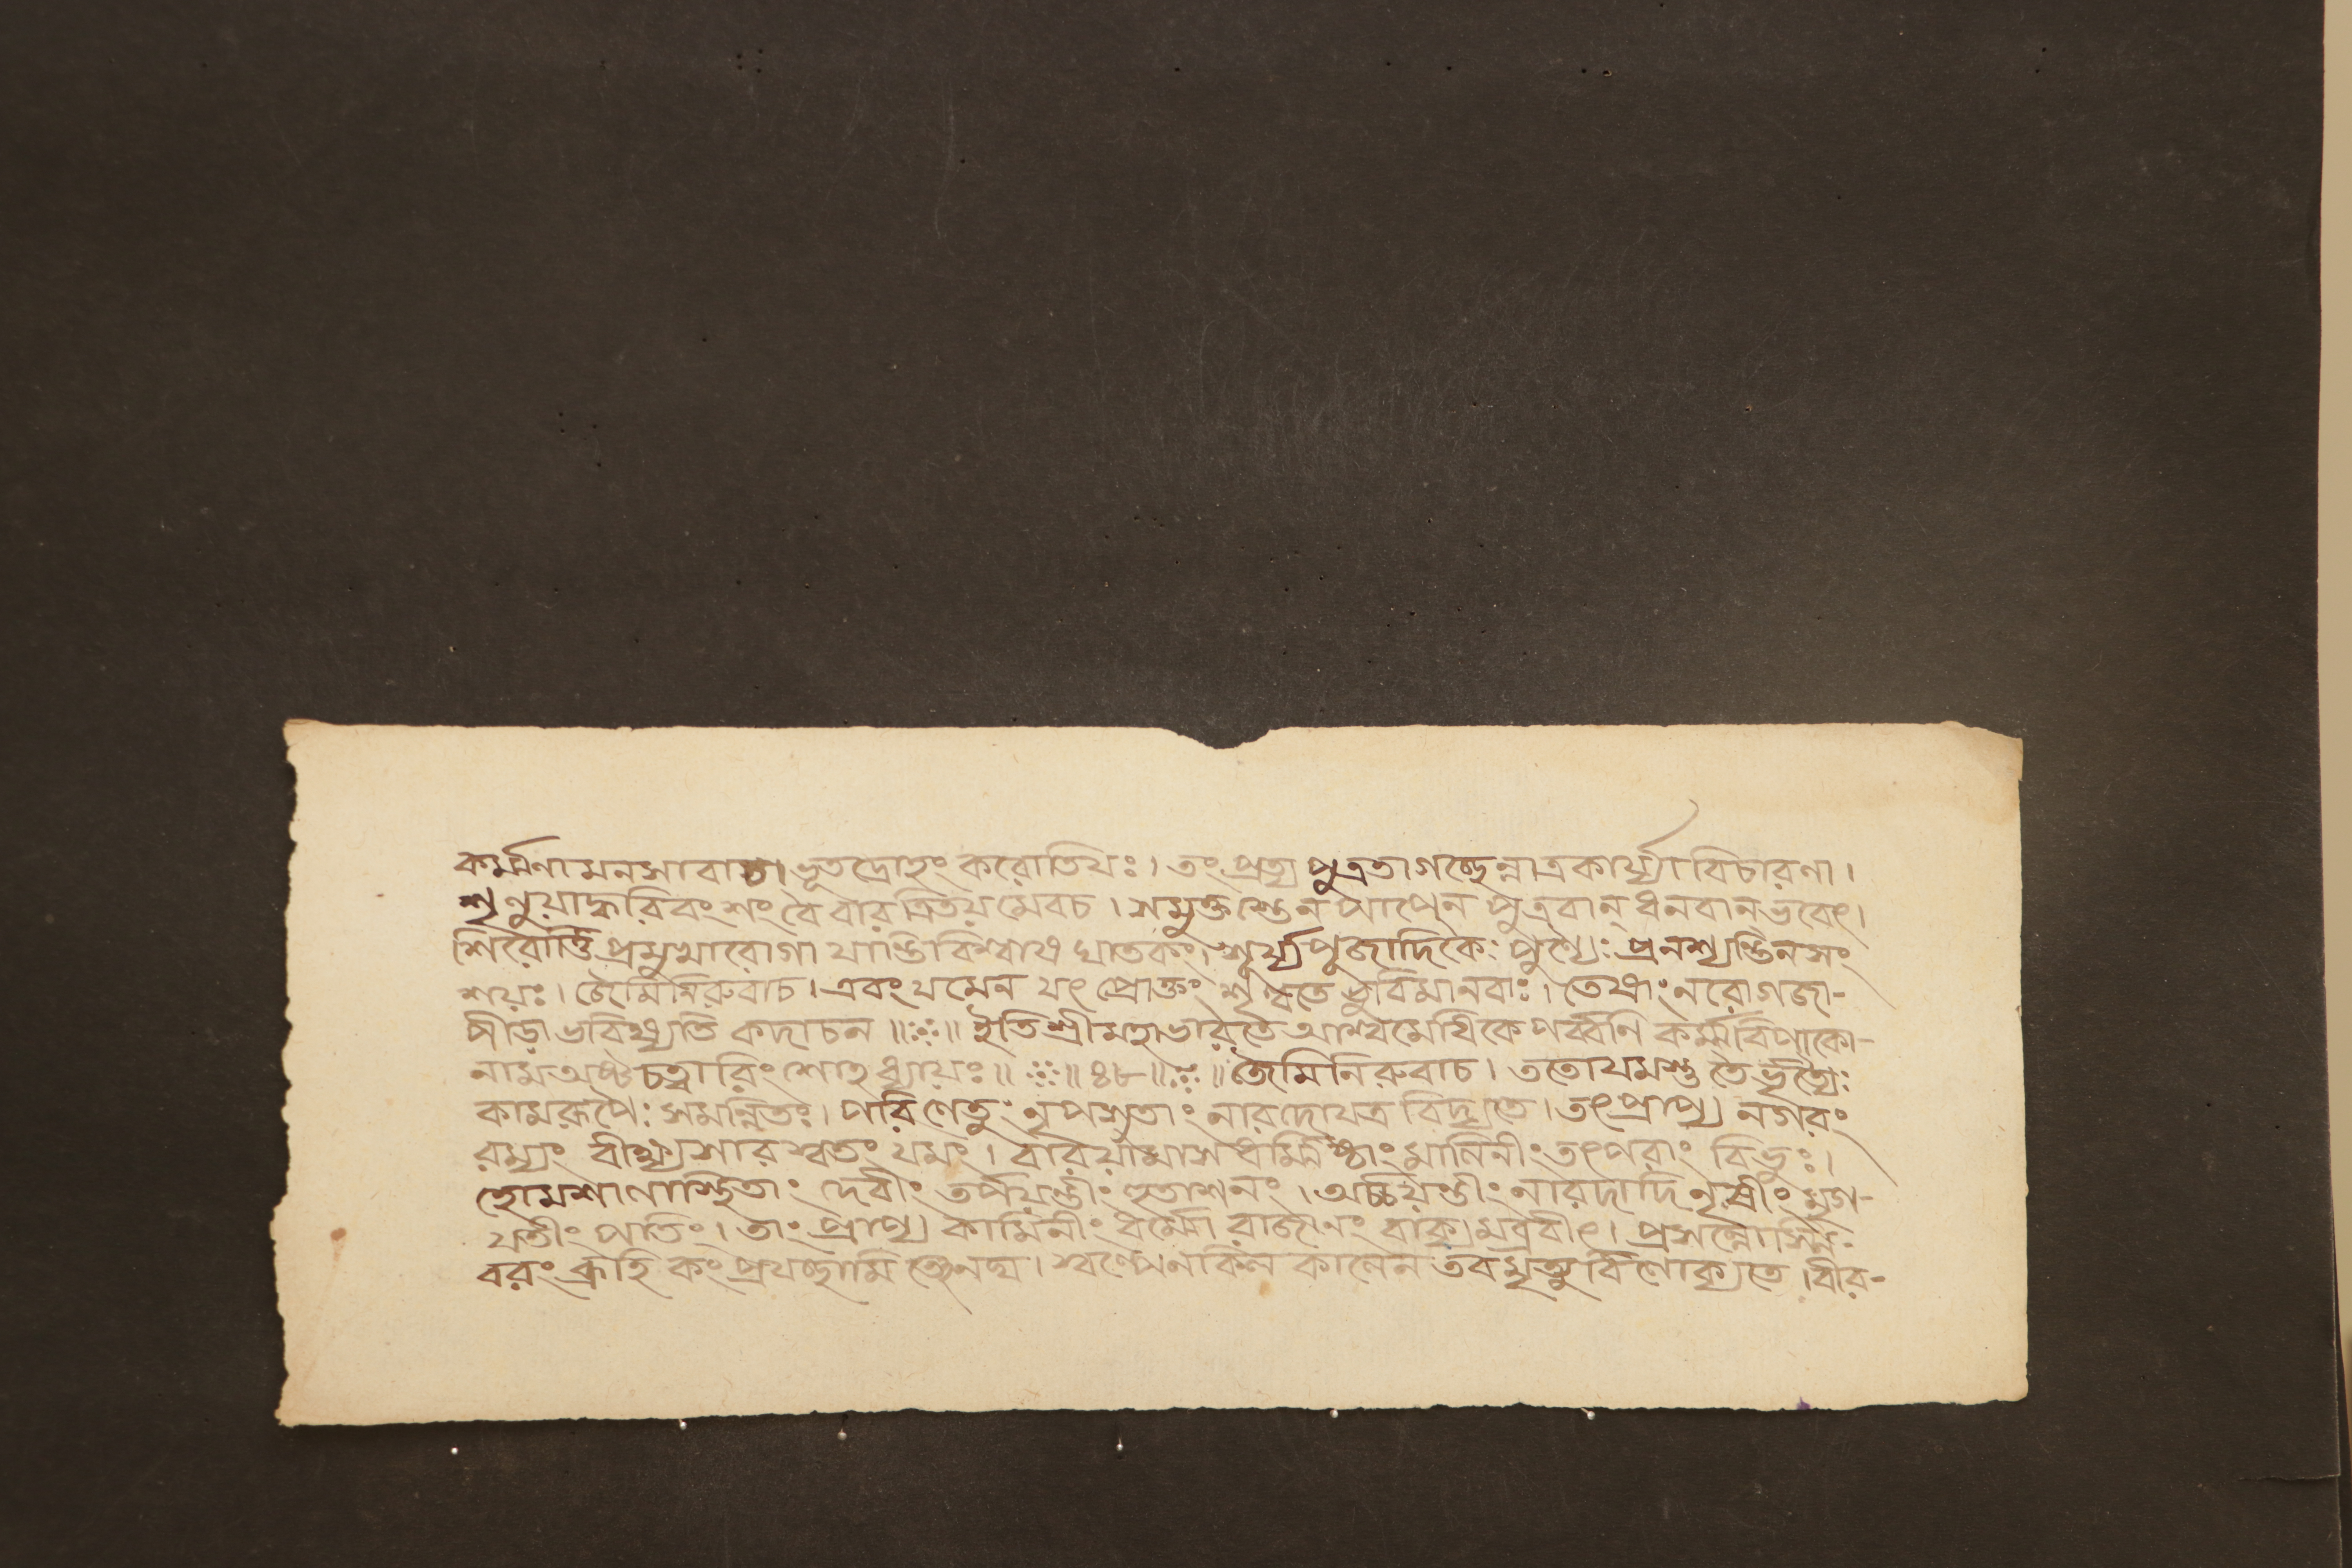 কর্ম্মণামনসাবাচা ভূতদ্রোহং করোতিযঃ। তং প্রত্য পুত্রতাগচ্ছেন্নাত্রকার্য্যাবিচারণা।
শৃণুয়াদ্ধরিবংশং বৈ বারত্রিতয়মেবচ। সমুক্তস্তেন পাপেন পুত্রবান্ ধনবান্ ভবেৎ।
শিরোর্ত্তিপ্রমুখারোগা যান্তিবিশ্বাস ঘাতকং। শূর্য্যপূজাদিকৈঃ পুণ্যৈঃ প্রনশ্যন্তিনসং
শয়ঃ। জৈমিনিরুবাচ। এবং যমেন যৎ প্রোক্তং শৃণ্বতে ভুবিমানবাঃ। তেষাং নরোগজা-
পীড়া ভবিষ্যতি কদাচন॥ঃ॥ ইতিশ্রীমহাভারতে আশ্বমেধিকে পর্ব্বণি কর্ম্মবিপাকো-
নামঅষ্টচত্বারিংশোহধ্যায়ঃ॥ ॥৪৮॥ ॥ জৈমিনিরুবাচ। ততোযমস্তু তৈর্ভৃত্যৈঃ
কামরূপৈঃ সমন্নিতঃ। পরিণেতুং নৃপসুতাং নারদোযত্র বিদ্যতে। তৎপ্রাপ্য নগরং
রম্যং বীক্ষ্যশারস্বতং যমং। বরিয়ামাসধর্ম্মিষ্ঠাং মালিনীং তৎপরাং বিভুঃ।
হোমশালাস্থিতাং দেবীং তর্পয়ন্তীং হুতাশনং। অর্চ্চয়ন্তীং নারদাদিনৃষীং মৃগ-
যতীং পতিং। তাং প্রাপ্য কামিনীং ধর্ম্মো রাজানং বাক্যমব্রবীৎ। প্রসন্নোস্মি
বরং ব্রুহি কং প্রযচ্ছামি তেনঘ। স্বল্পেনকিল কালেন তবমৃত্যুর্বিলোক্যতে। বীর-